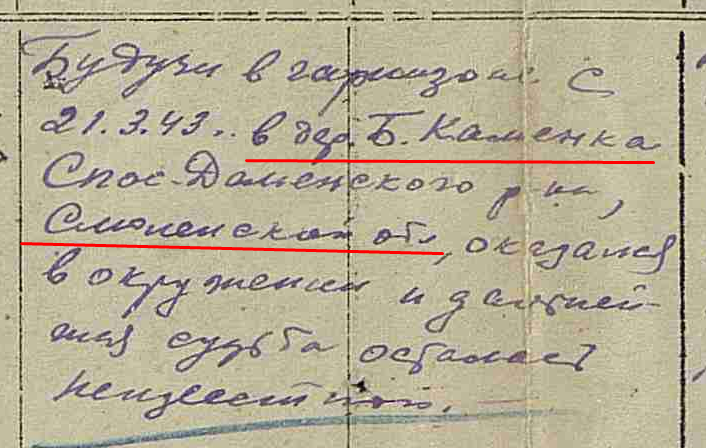 Будучи в гарнизоне с
21.3.43.. в дер. Б. Каменка
Спас-Деменского р-на,
Смоленской обл, оказался
в окружении и дальней-
шая судьба осталась
неизвестной.